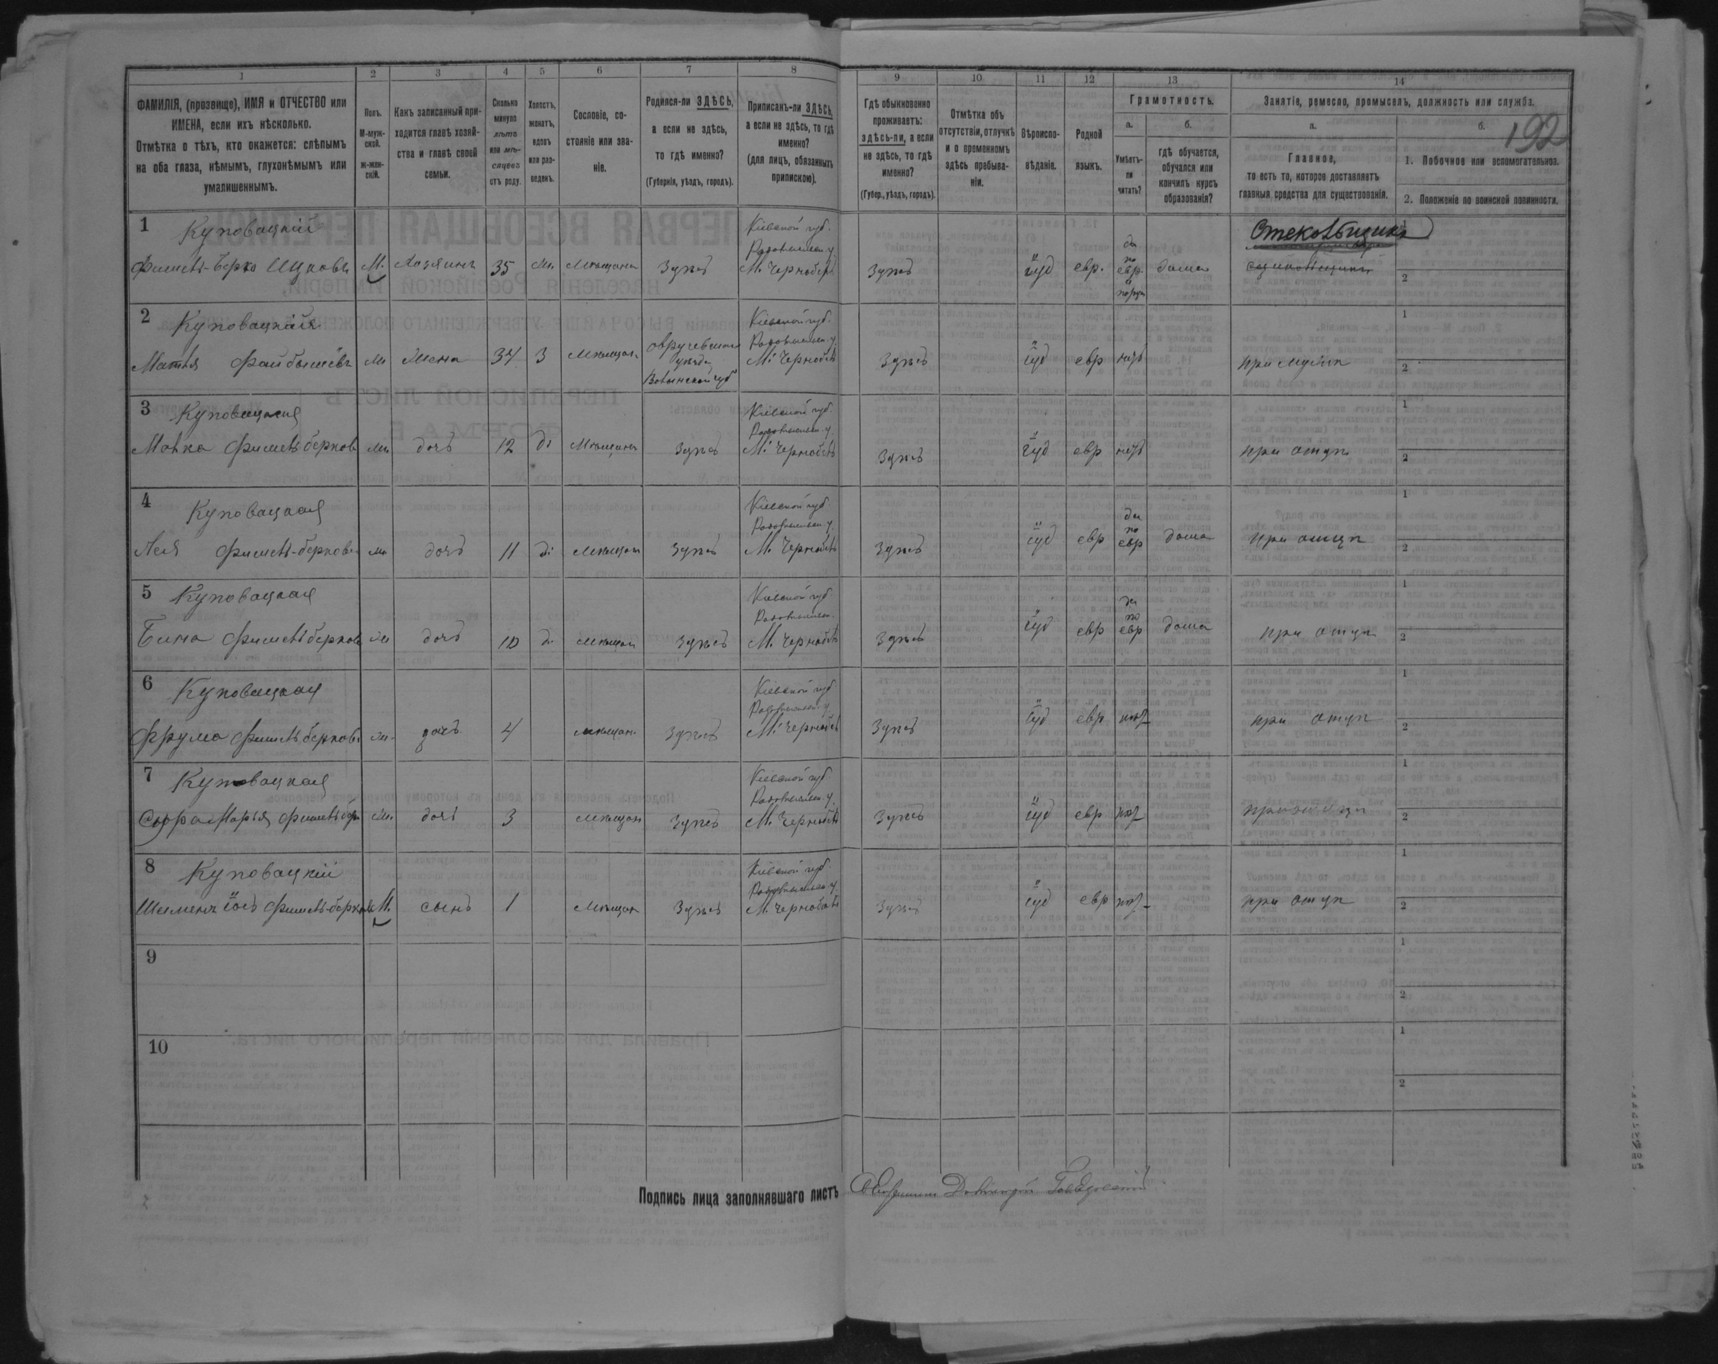 1 2 3 4 5 6 7 8 9 10 11 12 13 14
ФАМИЛІЯ, (прозвище), ИМЯ и ОТЧЕСТВО или ИМЕНА, если ихъ нѣсколько.
Отмѣтка о тѣхъ, кто окажется: слѣпымъ на оба глаза, нѣмымъ, глухонѣмымъ или умалишеннымъ.
Полъ. М-мужской. Ж-женскій.
Какъ записанный приходится главѣ хозяйства и главѣ своей семьи.
Сколько минуло лѣтъ или мѣсяцевъ отъ роду.
Холостъ, женатъ, вдовъ или разведенъ.
Сословіе, состояніе или званіе.
Родился-ли ЗДѢСЬ, а если не здѣсь, то гдѣ именно?
(Губернія, уѣздъ, городъ).
Приписанъ-ли ЗДѢСЬ, а если не здѣсь, то гдѣ именно?
(для лицъ, обязанныхъ припискою).
Гдѣ обыкновенно проживаетъ: здѣсь-ли, а если не здѣсь, то гдѣ именно?
(Губер., уѣздъ, городъ).
Отмѣтка объ отсутствіи, отлучкѣ и о временномъ здѣсь пребываніи.
Вѣроисповѣданіе.
Родной языкъ.
Грамотность.
а. Умѣетъ-ли читать?
б. гдѣ обучается, обучался или кончилъ курсъ образованія?
Занятіе, ремесло, промыселъ, должность или служба.
а. Главное,
то есть то, которое доставляетъ главныя средства для существованія.
б. 192
1. Побочное или вспомогательное.
2. Положеніе по воинской повинности.
1 Куповацкій
Фишель-Берко Ицковъ М. Хозяинъ 35 жн. мѣщан. Здѣсь Кіевской губ. Радомысл. у. М. Чернобыль Здѣсь іуд евр. да по евр дома Стекольщикъ
1
2
2 Куповацкая
Матля Файбышевъ ж Жена 37 з мѣщан. Овручевскаго уѣзда Волынской губ Кіевской губ. Радомысл. у. М. Чернобыль Здѣсь іуд евр нѣтъ при мужѣ
1
2
3 Куповацкая
Фишель берков ж дочь 12 дѣ мѣщан. Здѣсь Кіевской губ. Радомысл. у. М. Чернобыль Здѣсь іуд евр нѣтъ при отцѣ
1
2
4 Куповацкая
Лея Фишель-беркова ж дочь 11 дѣ мѣщан. Здѣсь Кіевской губ Радомысл. у. М. Чернобыль Здѣсь іуд евр да по евр дома при отцѣ
1
2
5 Куповацкая
Бина Фишель берков ж дочь 10 дѣ мѣщан Здѣсь Кіевской губ Радомысл. М. Чернобыль Здѣсь іуд евр да по евр дома при отцѣ
1
2
6 Куповацкая
Фрума Фишель берков ж дочь 4 мѣщан. Здѣсь Кіевской губ Радомысл. у М. Чернобыль Здѣсь іуд евр нѣт при отцѣ
1
2
7 Куповацкая
Сурра Марья Фишель бер ж. дочь 3 мѣщан Здѣсь Кіевской губ Радомысл. у. М. Чернобыль Здѣсь іуд евр нѣт при отцѣ
1
2
8 Куповацкій
Фишель-берков М. сынъ 1 мѣщан Здѣсь Кіевской губ. Радомысл. у. М. Чернобыль Здѣсь іуд евр нѣт при отцѣ
1
2
9
1
2
10
1
2
Подпись лица заполнявшаго листъ